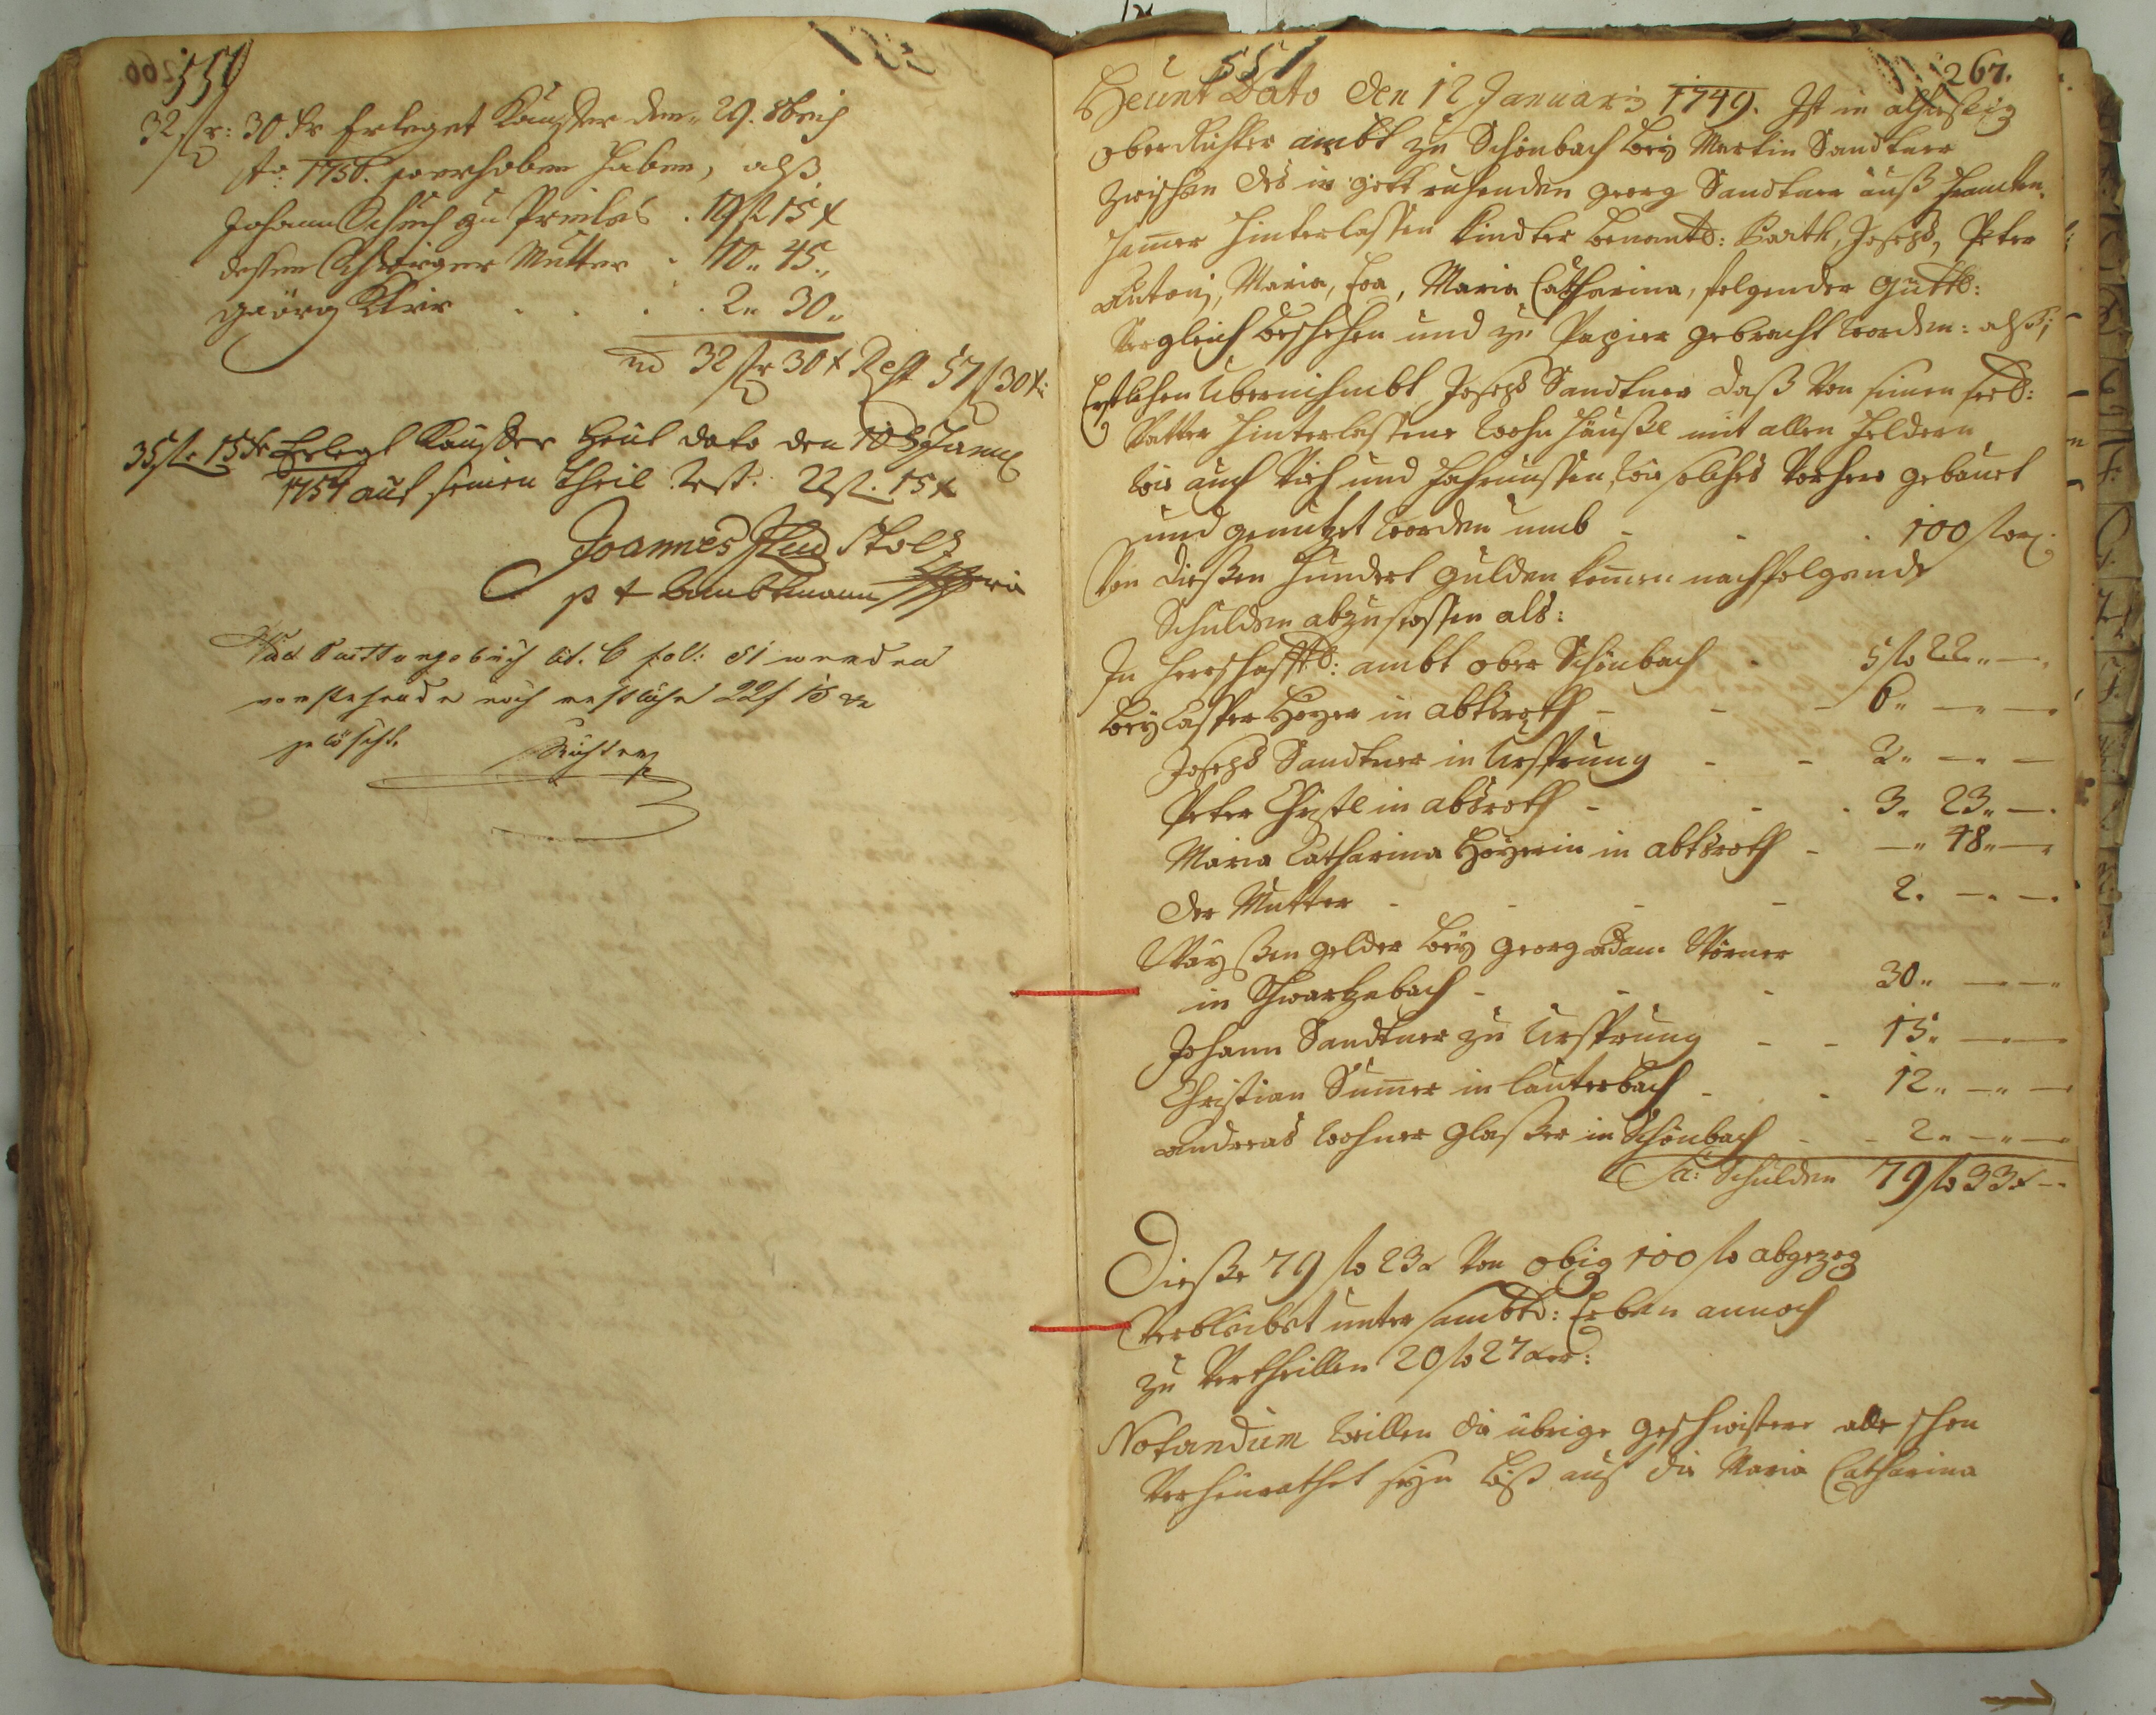 550
32 fl: 30 kr Erleget Kauffer den 29. 8bris
Ao: 1750. so erhoben haben, alß
Johann Schuch zu . 19 fl 15 x
dessen Schwieger Mutter . 10 " 45 "
Geörg . . . . 2 " 30 "
id 32 fl 30 x Rest 57 fl 30 x:
35 fl. 15 kr Erlegt Kauffer Heut dato den Janu
1751 auf seinen theil Rest. 22 fl. 15 x
Joannes Stolz
p t Ambtmann
lit. C fol: 51 werden
vorstehende noch restliche 22 f 15 xr
gelöscht. Richter
551
267.
Heunt Dato den 12 Januari 1749. Ist in alhiesig
oberRichter ambt zu Schönbach bey Martin Sandtner
zwischen des in gott ruhenden georg Sandtner auß
hammer hinterlassen Kindter benantl: Barth, Joseph, Peter
Antonj, Maria, Eva, Maria Catharina, folgender güttl:
Vergleich beschehen und zu Papier gebracht worden: alß;
Erstlichen übernihmbt Joseph Sandtner daß von seinen seel:
Vatter hinterlassene wohn häußl mit allen feldern
wie auch Vich und fahrnussen, wie solches vorhero gebauet
und genutzet worden umb - - . 100 flor.
Von diessen hundert gulden komen nachfolgende
Schulden abzustossen als:
In herrschafftl: ambt ober Schönbach . 5 fl 22 " — "
bey Casper Hoyer in abtsroth - - - 6 " — " —
Joseph Sandtner in Ursprung - - 2 " — " —
Peter Christl in absroth - - - 3 " 23 " —
Maria Catharina Hoyerin in abtsroth - — " 48 " —
der Mutter - - - - 2 " — " —
Waysen gelder bey georg adam Wörner
in Schwartzebach - - - 30 " — " —
Johann Sandtner zu Ursprung - - 15 " — " —
Christian Sumer in lauterbach - - 12 " — " —
andreas wohner glasser in Schönbach - - 2 " — " —
Sa: Schulden 79 fl 33 x —
Diesse 79 fl 23 x von obig 100 fl abgezog
verbleibet unter sambtl: Erben annoch
zu vertheillen 20 fl 27 xer:
Notandum weillen die übrige geschwistere alle schon
verheurathet seyn biß auf die Maria Catharina